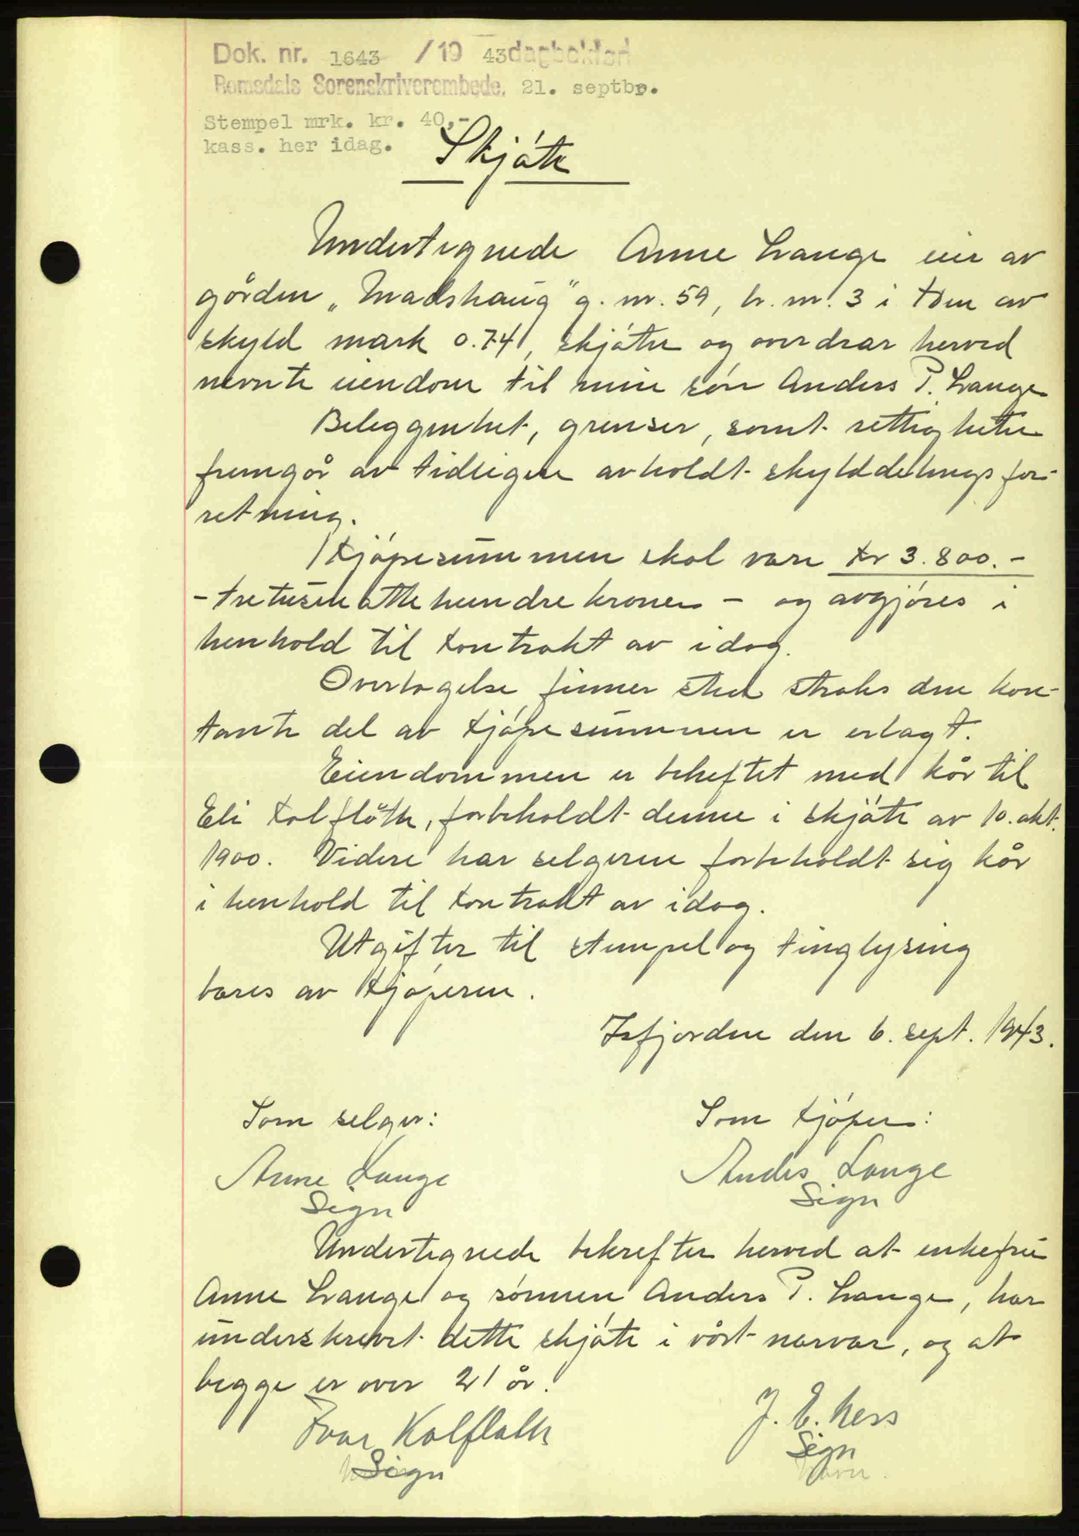 Dok. nr. 1643 /19 43 dagbokført
Romsdals Sorenskriverembede, 21. septbr.
Stempel mrk. kr. 40,-
kass. her idag.
Skjøte
Undertegnede Anne Lange eier av
gården „Madshaug" g. nr. 59, br. nr. 3 i av
skyld mark 0.74, skjøter og overdrar herved
nevnte eiendom til min søn Anders P. Lange
Beliggenhet, grenser, samt rettigheter
fremgår av tidligere avholdt skylddelingsfor-
retning.
Kjøpesummen skal være kr 3.800.-
- tretusenåttehundrekroner - og avgjøres i
henhold til kontrakt av idag.
Overtagelse finner sted straks den kon-
tante del av kjøpesummen er erlagt.
Eiendommen er beheftet med kår til
Eli Kolflåth, forbeholdt denne i skjøte av 10. okt.
1900. Videre har selgeren forbeholdt sig kår
i henhold til kontrakt av idag.
Utgifter til stempel og tinglysing
bæres av kjøperen.
Isfjorden den 6. sept. 1943.
Som selger: Som kjøper:
Anne Lange Anders Lange
Sign Sign
Undertegnede bekrefter herved at enkefru
Anne Lange og sønnen Anders P. Lange, har
underskrevet dette skjøte i vårt nærvær, og at
begge er over 21 år.
Ivar Kolflath J. E. Ness
Sign Sign